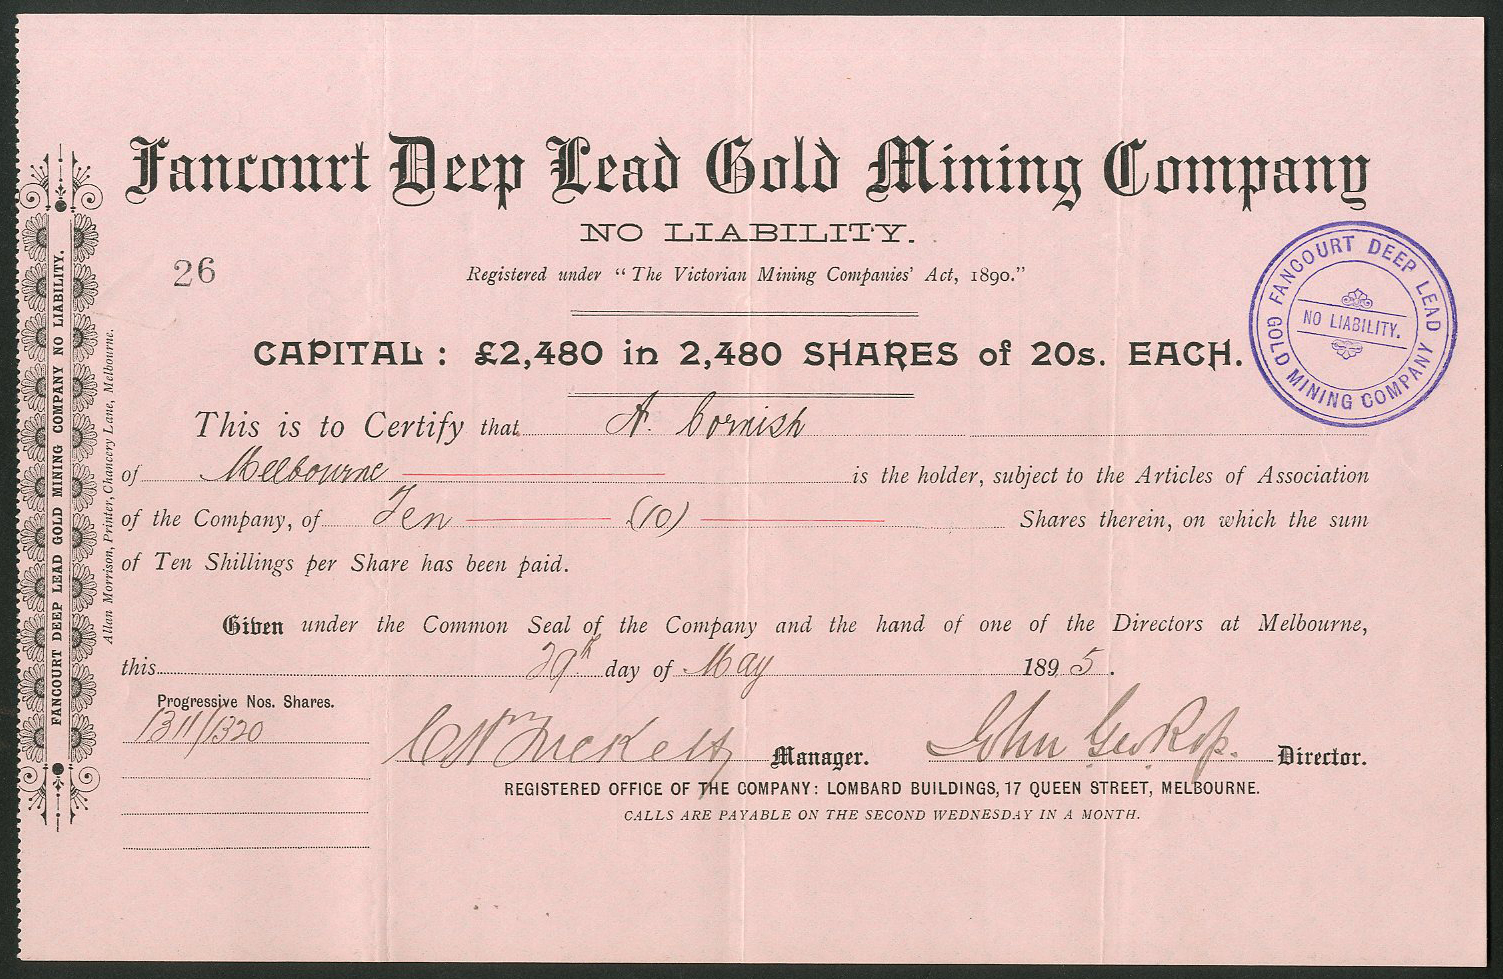 Fancourt Deep Lead Gold Mining Company
NO LIABILITY.
26
Registered under “The Victorian Mining Companies' Act, 1890.”
CAPITAL: £2,480 in 2,480 SHARES of 20s. EACH.
FANCOURT DEEP LEAD
GOLD MINING COMPANY
NO LIABILITY.
This is to Certify that A. Cornish
of Melbourne is the holder, subject to the Articles of Association
of the Company, of Ten (10) Shares therein, on which the sum
of Ten Shillings per Share has been paid.
Given under the Common Seal of the Company and the hand of one of the Directors at Melbourne,
this 29th day of May 1895.
Progressive Nos. Shares.
1311/1320
Manager. John Geo Director.
REGISTERED OFFICE OF THE COMPANY: LOMBARD BUILDINGS, 17 QUEEN STREET, MELBOURNE.
CALLS ARE PAYABLE ON THE SECOND WEDNESDAY IN A MONTH.
FANCOURT DEEP LEAD GOLD MINING COMPANY NO LIABILITY.
Allan Morrison, Printer, Chancery Lane, Melbourne.